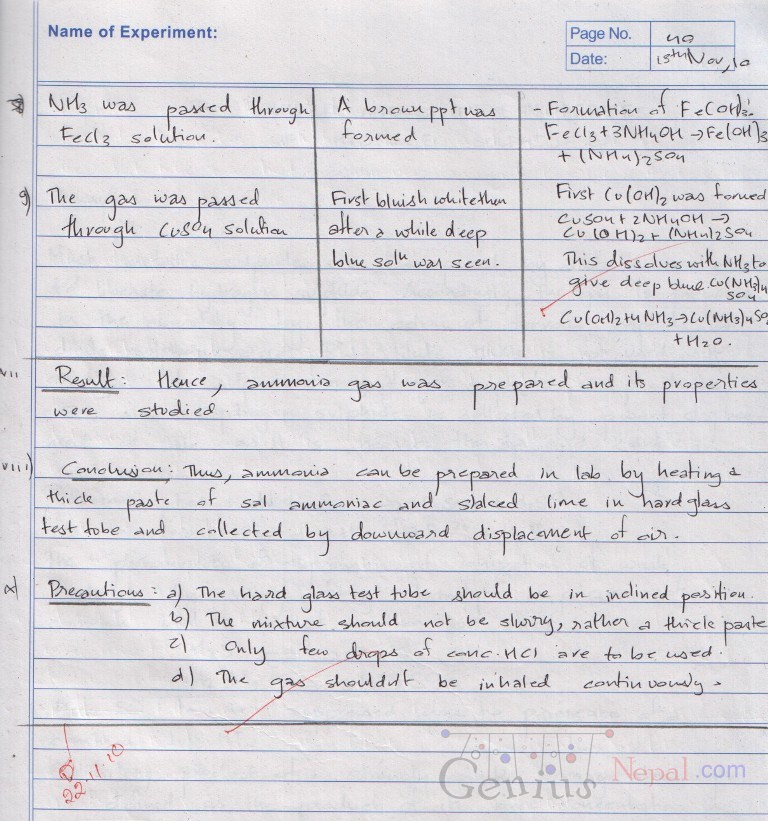 Name of Experiment:
Page No. 40
Date: 15th Nov, 10
NH3 was passed through
FeCl3 solution.
A brown ppt was
formed
- Formation of Fe(OH)3:
FeCl3 + 3NH4OH → Fe(OH)3
+ (NH4)2SO4
g) The gas was passed
through CuSO4 solution
First bluish white then
after a while deep
blue soln was seen.
First Cu(OH)2 was formed
CuSO4 + 2NH4OH →
Cu(OH)2 + (NH4)2SO4
This dissolves with NH3 to
give deep blue Cu(NH3)4
SO4
Cu(OH)2+4NH3→Cu(NH3)4SO4
+H2O.
vii
Result: Hence, ammonia gas was prepared and its properties
were studied.
viii) Conclusion: Thus, ammonia can be prepared in lab by heating a
thick paste of sal ammoniac and slaked lime in hard glass
test tube and collected by downward displacement of air.
x) Precautions: a) The hard glass test tube should be in inclined position.
b) The mixture should not be slurry, rather a thick paste
c) Only few drops of conc. HCl are to be used.
d) The gas shouldn't be inhaled continuously.
22.11.10
Genius Nepal.com